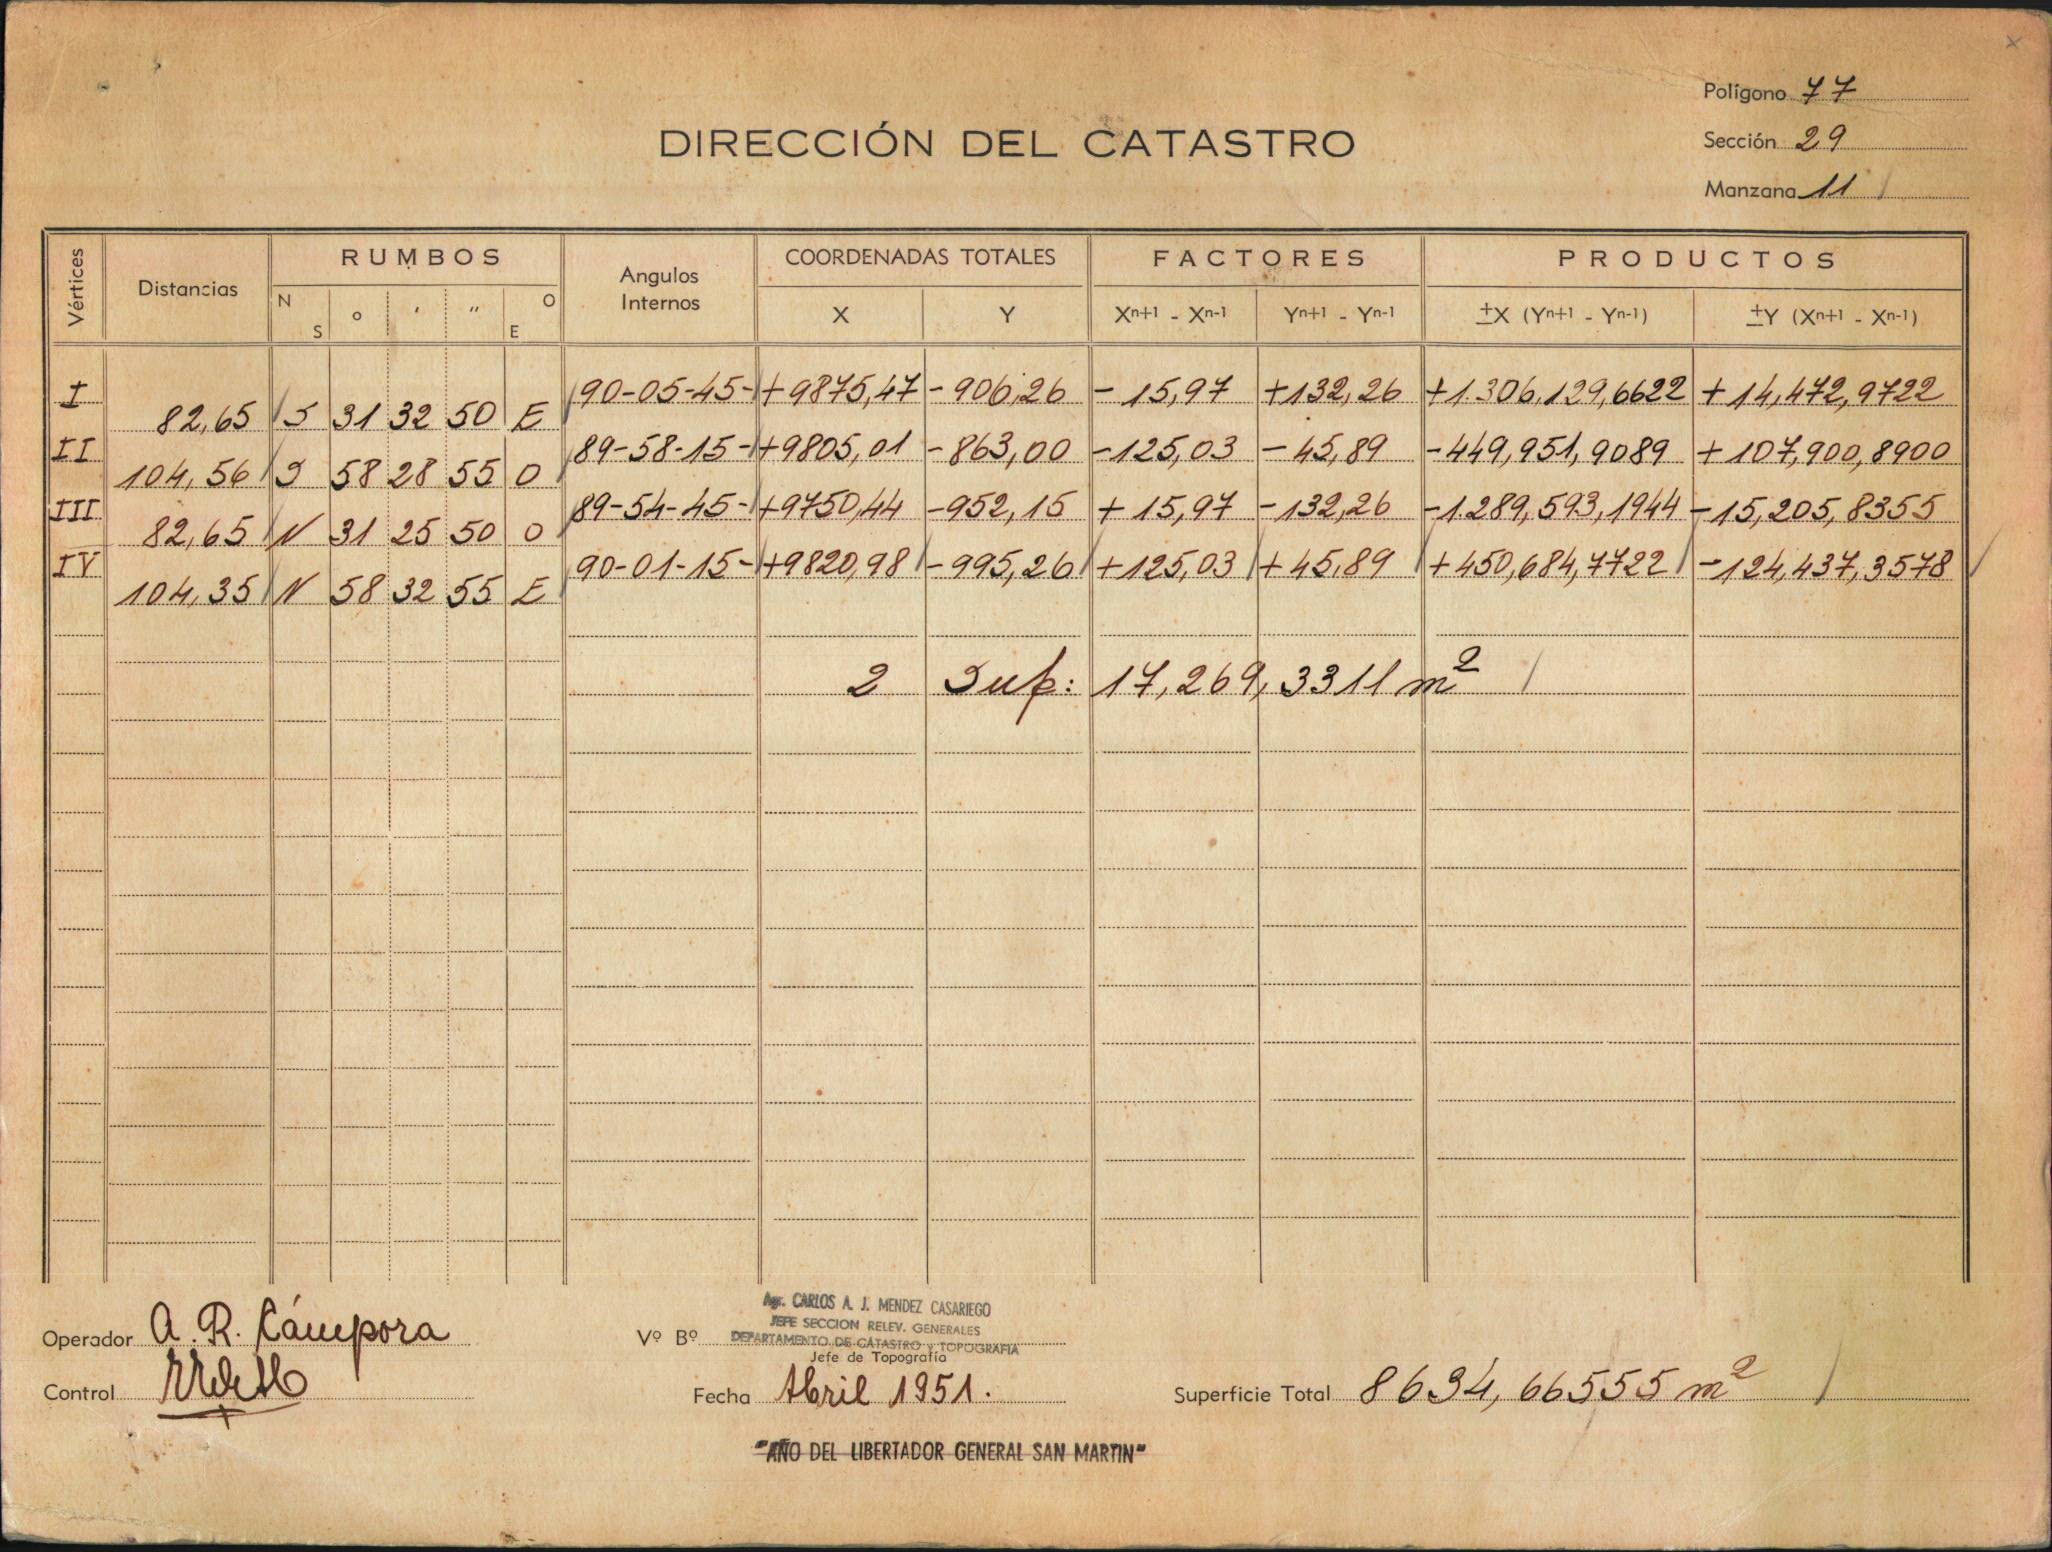 Polígono 77
DIRECCIÓN DEL CATASTRO
Sección 29
Manzana 11
Vértices Distancias RUMBOS Angulos Internos COORDENADAS TOTALES FACTORES PRODUCTOS
N S o ' " O E X Y Xn+1 - Xn-1 Yn+1 - Yn-1 ±X (Yn+1 - Yn-1) ±Y (Xn+1 - Xn-1)
I 90-05-45- +9875,47 -906,26 -15,97 +132,26 +1.306,129,6622 +14,472,9722
82,65 S 31 32 50 E
II 89-58-15- +9805,01 -863,00 -125,03 -45,89 -449,951,9089 +107,900,8900
104,56 S 58 28 55 O
III 89-54-45- +9750,44 -952,15 +15,97 -132,26 -1.289,593,1944 -15,205,8355
82,65 N 31 25 50 O
IV 90-01-15- +9820,98 -995,26 +125,03 +45,89 +450,684,7722 -124,437,3578
104,35 N 58 32 55 E
2 Sup: 17,269,3311 m²
Operador A. R. Cámpora
Vº Bº
Agr. CARLOS A. J. MENDEZ CASARIEGO
JEFE SECCION RELEV. GENERALES
DEPARTAMENTO DE CATASTRO y TOPOGRAFIA
Jefe de Topografía
Control
Fecha Abril 1951.
Superficie Total 8634,66555 m²
"AÑO DEL LIBERTADOR GENERAL SAN MARTIN"